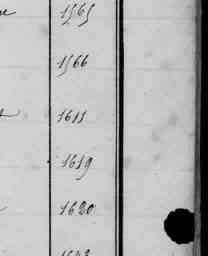 1565
1566
1611
1619
1620